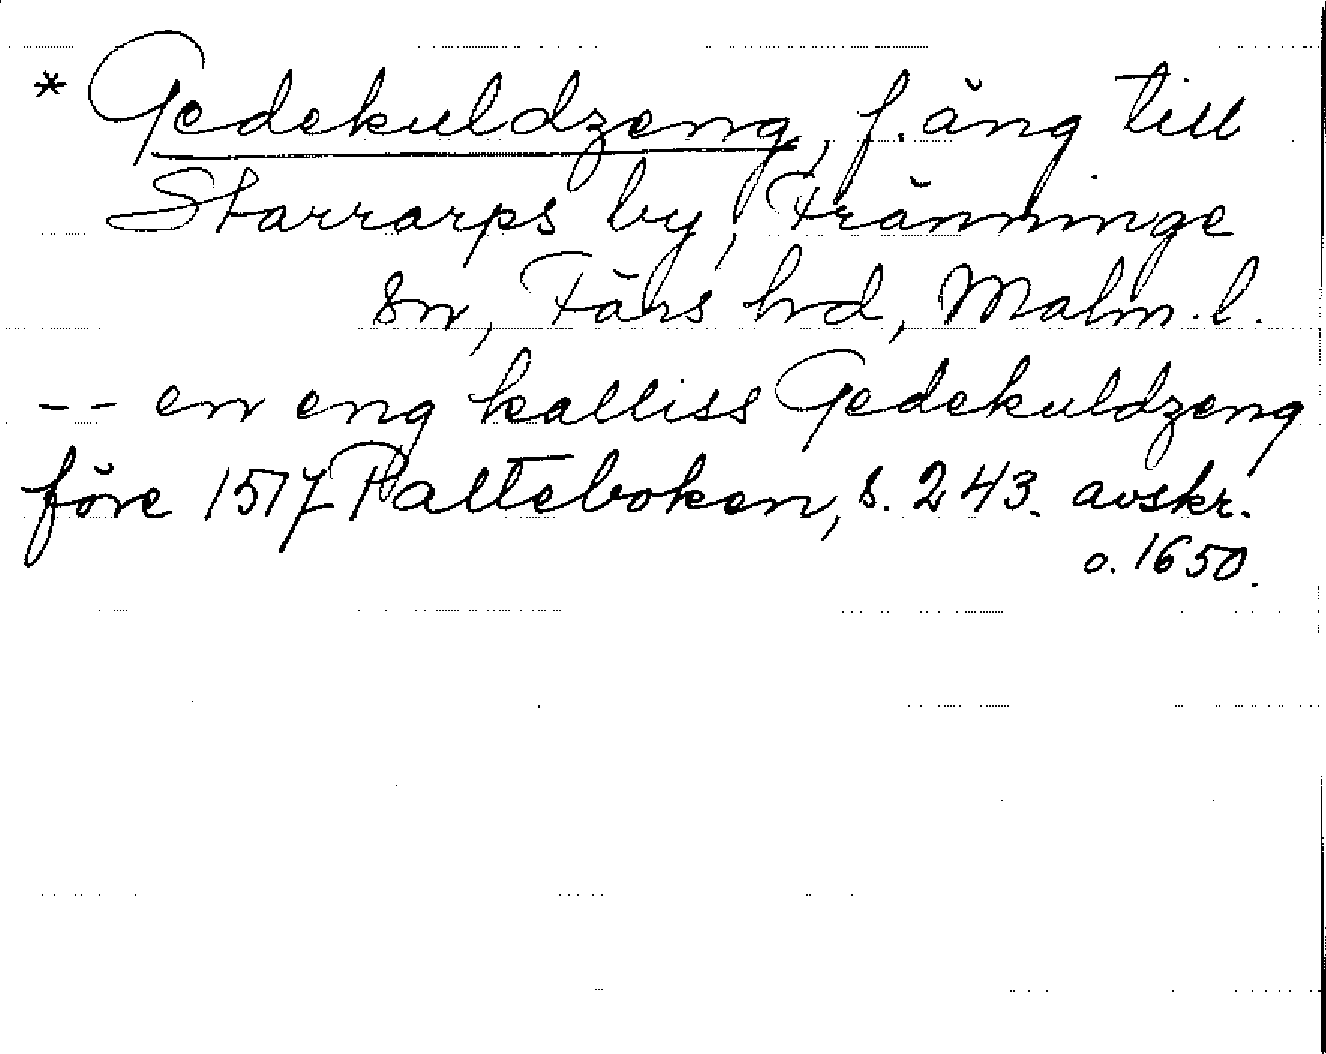 * Gedekuldzeng, f. äng till
Starrarps by, Fränninge
sn, Färs hd, Malm. l.
-- en eng kalliss Gedekuldzeng
före 1517 Palteboken, s. 243. avskr.
o. 1650.